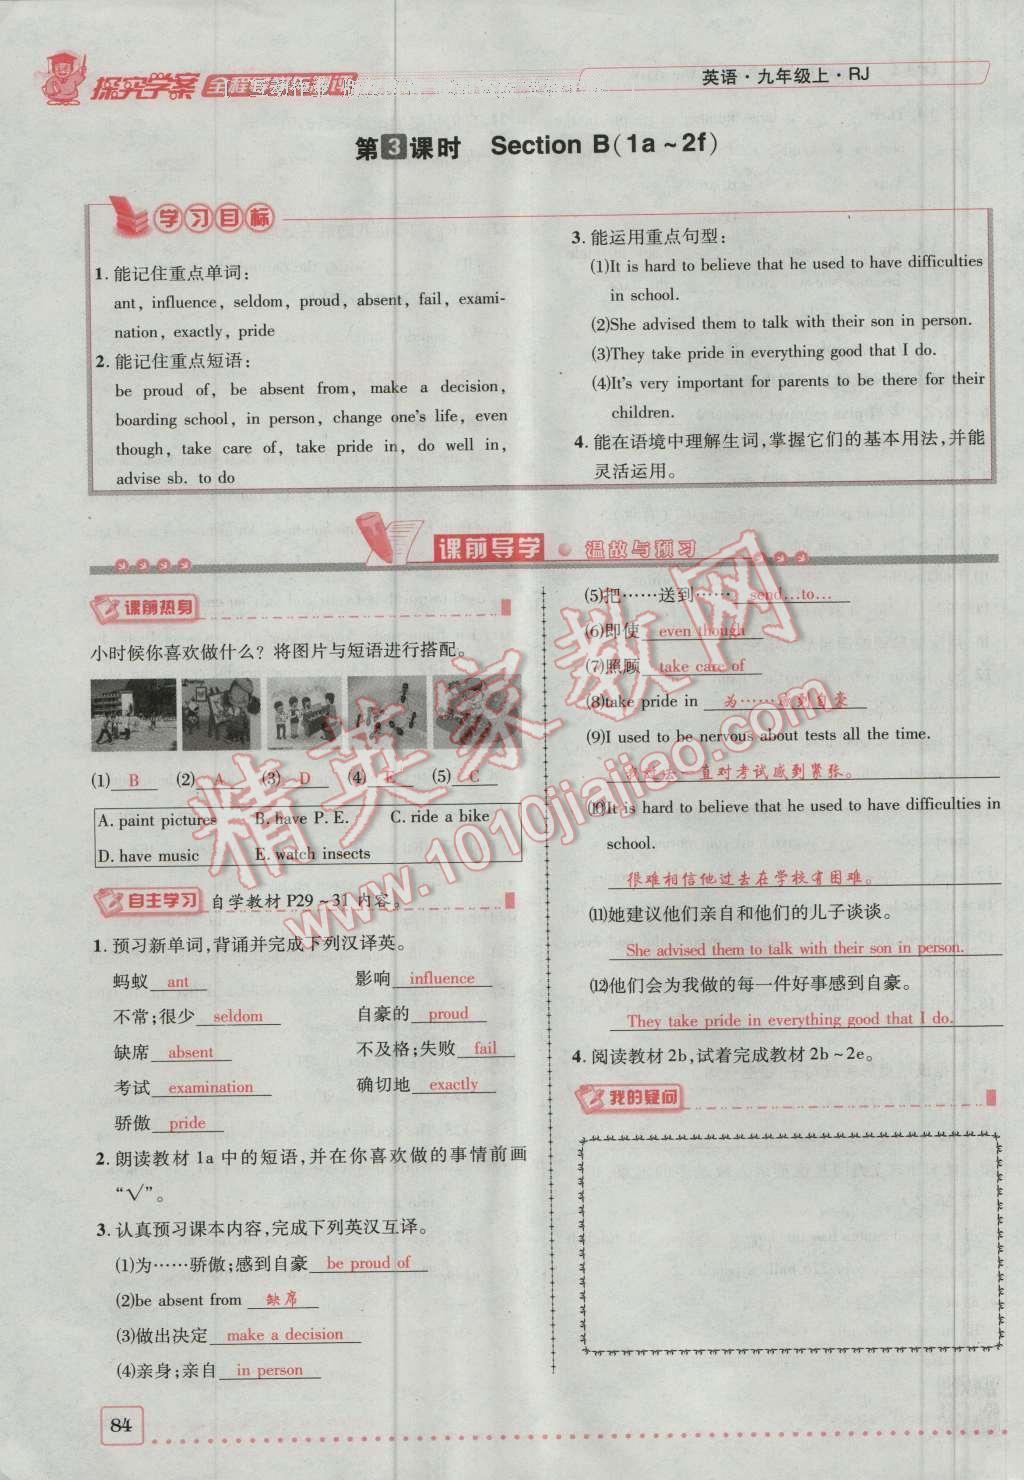 探究学案
英语·九年级上·RJ
第3课时 Section B(1a~2f)
学习目标
1. 能记住重点单词:
ant, influence, seldom, proud, absent, fail, exami-
nation, exactly, pride
2. 能记住重点短语:
be proud of, be absent from, make a decision,
boarding school, in person, change one's life, even
though, take care of, take pride in, do well in,
advise sb. to do
3. 能运用重点句型:
(1)It is hard to believe that he used to have difficulties
in school.
(2)She advised them to talk with their son in person.
(3)They take pride in everything good that I do.
(4)It's very important for parents to be there for their
children.
4. 能在语境中理解生词,掌握它们的基本用法,并能
灵活运用。
课前导学 温故与预习
课前热身
小时候你喜欢做什么? 将图片与短语进行搭配。
(1) B (2) A (3) D (4) E (5) C
A. paint pictures B. have P. E. C. ride a bike
D. have music E. watch insects
自主学习 自学教材 P29~31内容。
1. 预习新单词,背诵并完成下列汉译英。
蚂蚁 ant 影响 influence
不常;很少 seldom 自豪的 proud
缺席 absent 不及格;失败 fail
考试 examination 确切地 exactly
骄傲 pride
2. 朗读教材 1a 中的短语,并在你喜欢做的事情前画
“√”。
3. 认真预习课本内容,完成下列英汉互译。
(1)为……骄傲;感到自豪 be proud of
(2)be absent from 缺席
(3)做出决定 make a decision
(4)亲身;亲自 in person
(5)把……送到…… send…to…
(6)即使 even though
(7)照顾 take care of
(8)take pride in 为……感到自豪
(9)I used to be nervous about tests all the time.
我过去一直对考试感到紧张。
(10)It is hard to believe that he used to have difficulties in
school.
很难相信他过去在学校有困难。
(11)她建议他们亲自和他们的儿子谈谈。
She advised them to talk with their son in person.
(12)他们会为我做的每一件好事感到自豪。
They take pride in everything good that I do.
4. 阅读教材 2b,试着完成教材 2b~2e。
我的疑问
84
精英家教网
www.1010jiajiao.com